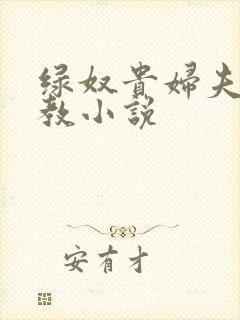 绿奴贵婦夫
教小説
安有才